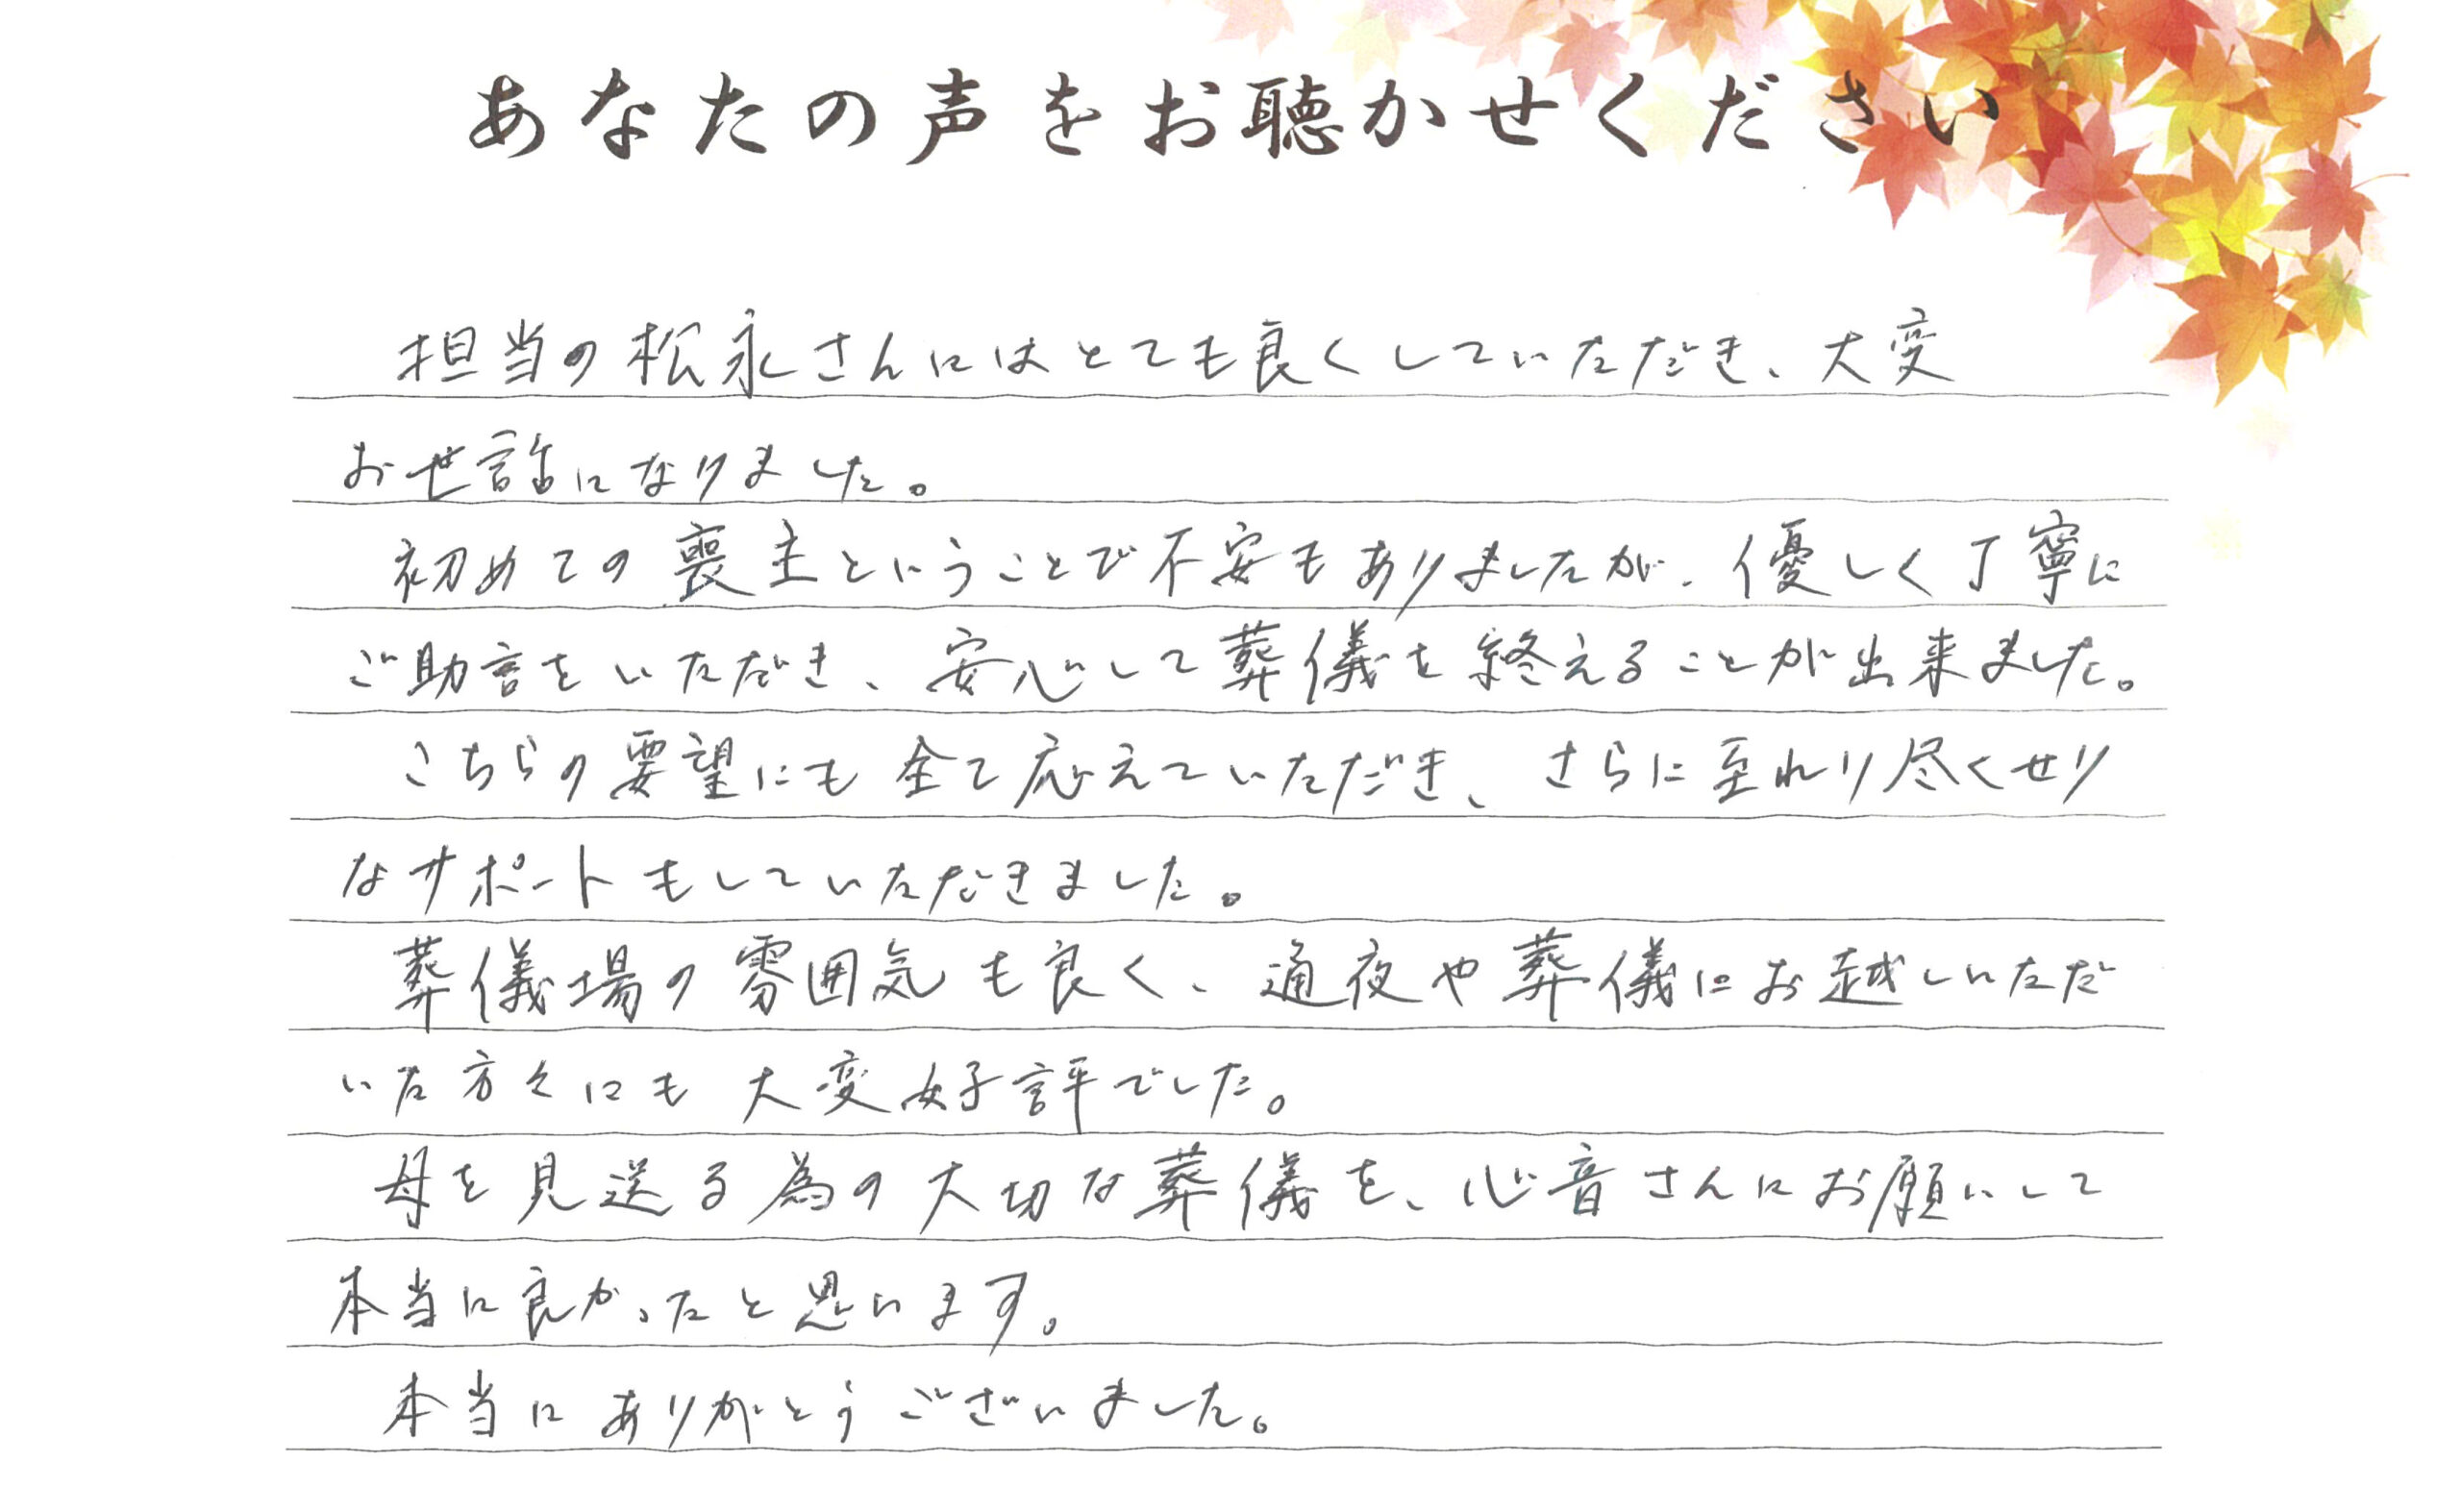 あなたの声をお聴かせください
担当の松永さんにはとても良くしていただき、大変
お世話になりました。
初めての喪主ということで不安もありましたが、優しく丁寧に
ご助言をいただき、安心して葬儀を終えることが出来ました。
こちらの要望にも全て応えていただき、さらに至れり尽くせり
なサポートもしていただきました。
葬儀場の雰囲気も良く、通夜や葬儀にお越しいただ
いた方々にも大変好評でした。
母を見送る為の大切な葬儀を、心音さんにお願いして
本当に良かったと思います。
本当にありがとうございました。